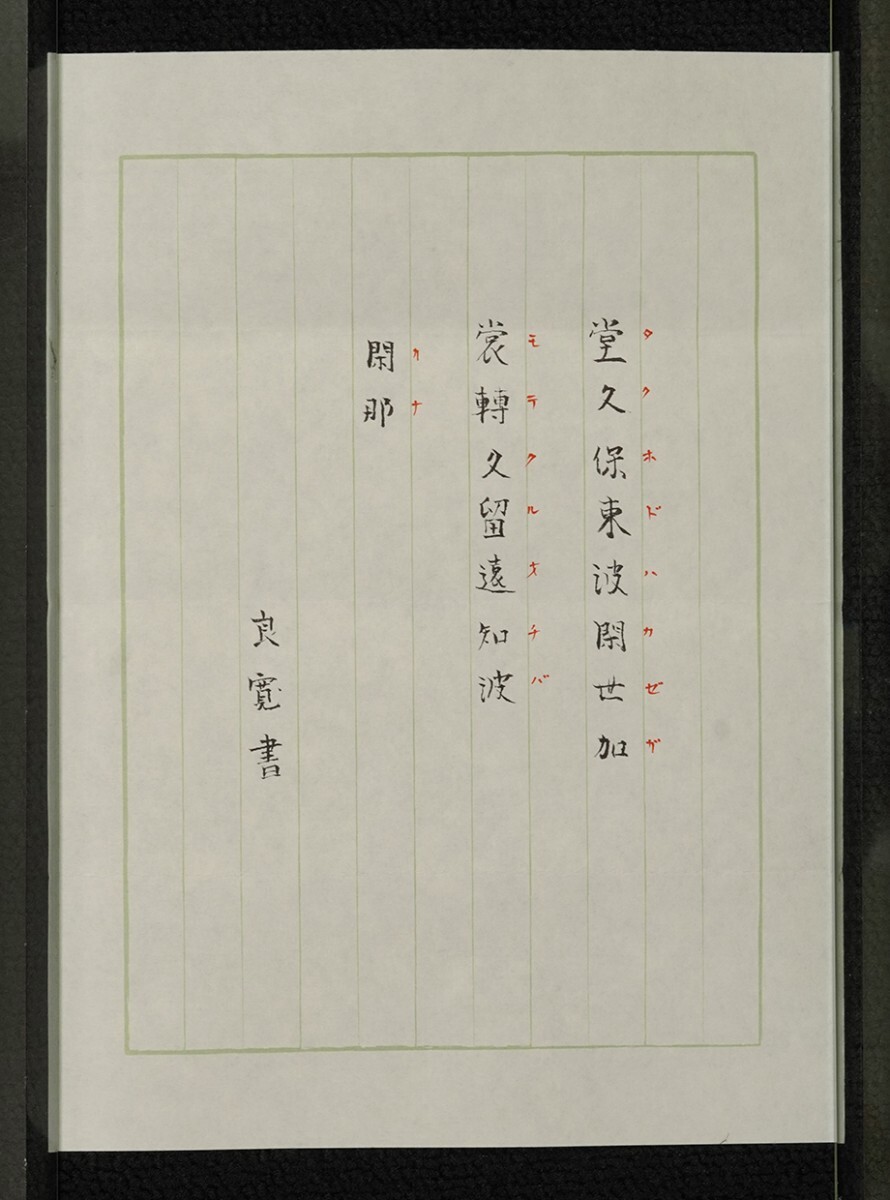 堂久保東波閑世加
タクホドハカゼガ
裳轉久留遠知波
モテクルオチバ
閑那
カナ
良寬書